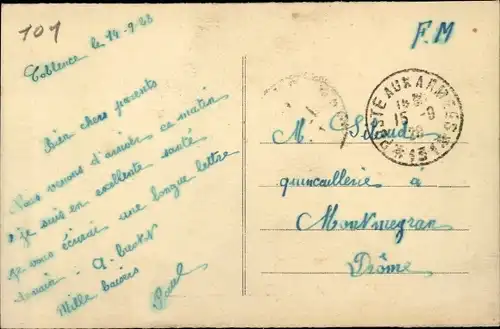 101
Coblence le 14-9-28
Bien chers parents
Nous venons d'arriver ce matin
je suis en excellente santé
je vous écrirai une longue lettre
demain - A bientôt
Mille baisers
Paul
F.M
POSTE AUX ARMEES
15 -9
28
M
quincaillerie à
Drôme